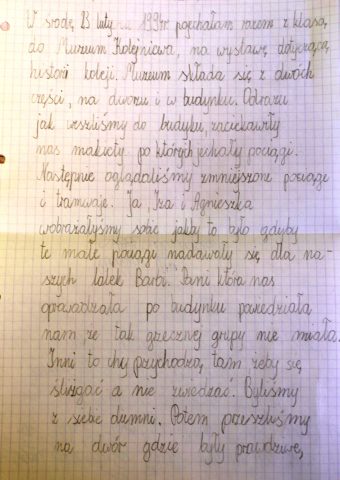 W środę 23 lutego 1994r pojechałam razem z klasą
do Muzeum Kolejnictwa, na wystawę dotyczącą
historii koleji. Muzeum składa się z dwóch
części, na dworzu i w budynku. Odrazu
jak weszliśmy do budyku, zaciekawiły
nas makiety po których jechały pociągi.
Następnie oglądaliśmy zmniejszone pociągi
i tramwaje. Ja, Iza i Agnieszka
wobrażałyśmy sobie jakby to było gdyby
te małe pociągi nadawały się dla na-
szych lalek Barbi. Pani która nas
oprowadzała po budynku powiedziała
nam że tak grzecznej grupy nie miała.
Inni to przychodzą tam żeby się
ślizgać a nie zwiedzać. Byliśmy
z siebie dumni. Potem przeszliśmy
na dwór gdzie były prawdziwe,